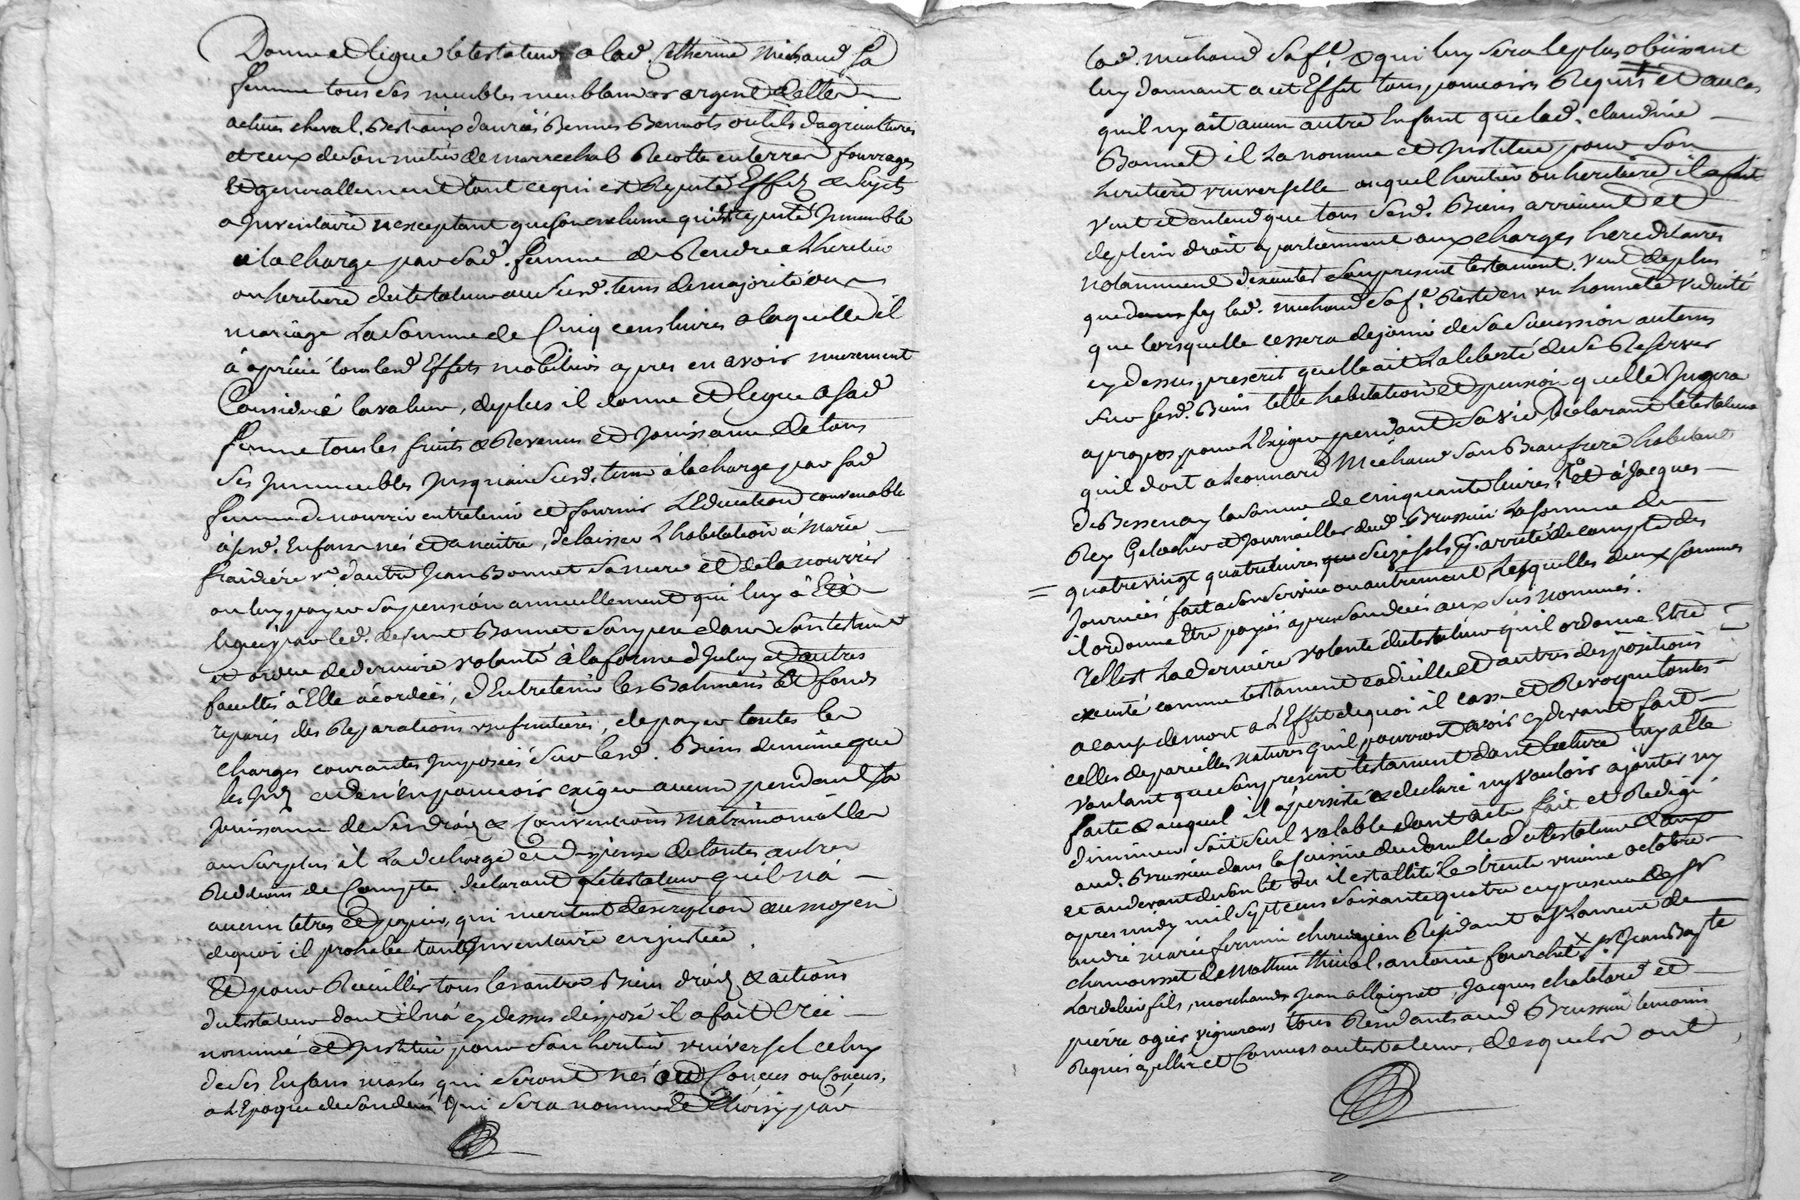 Donne et legue le testateur a lad. Catherine Michaud sa
femme tous ses meubles meublans or argent dettes
actives cheval, Bestiaux danrées Bennes Bennots outils dagriculture
et ceux de son metier de marrechal Recolte en terre fourrages
Et generallement tout ce qui est Reputé Effets & sujets
a Inventaire nexceptant que son enclume qui est reputé Immeuble
a la charge par sad. femme de Rendre a Lheritier
ou heritiere du testateur au susd. tems de majorité ou
mariage La somme de Cinq cens livres a laquelle il
à aprécié tous lesd. Effets mobiliers apres en avoir murement
Consideré la valeur, deplus il donne et legue a sad.
femme tous les fruits & Revenus et Jouissance de tous
ses Immeubles Jusquau susd. tems à la charge par sad.
femme de nourrir entretenir et fournir LEducation convenable
à sesd. Enfans nés et a naitre, de laisser Lhabitation à Marie
ve. dautre Jean Bonnet sa mere et de la nourrir
ou luy payer sa pension annuellement qui luy à Eté
leguée par led. defunt Bonnet son pere dans son testament
et ordonnance de derniere volonté à la forme dIceluy et autres
facultés à Elle acordées, dEntretenir les Batimens Et fonds
reparés des Reparations usufruitieres, de payer toutes les
charges courantes Imposées sur lesd. Biens de même que
les Intz. et den en pouvoir exiger aucun pendant sa
Jouissance de ses droits & Conventions matrimonialles
au surplus il La decharge Et dispense de toutes autres
Redditions de Comptes, declarant le testateur quil nà
aucun titres Et papiers qui meritent description au moyen
dequoi il prohibe tout Inventaire en justice.
Et pour Recuillir tous les autres Biens droits & actions
du testateur dont il nà cy dessus disposé il a fait Créé
nommé et Institué pour son heritier universel celuy
de ses Enfans masles qui seront nés ou Conçus
a LEpoque de son deces qui sera nommé & Choisy par
lad. michaud sa fe. & qui luy sera le plus obeissant
luy donnant a cet Effet tous pouvoirs Requis et au cas
quil ny ait aucun autre Enfant que lad. claudine
Bonnet il La nomme et Institue pour son
heritiere universelle auquel heritier ou heritiere il
veut et entend que tous sesd. Biens arrivent et
de plein droit apartiennent aux charges hereditaires
notamment dexecuter son present testament. veut de plus
que lad. michaud sa fe. Reste en un honneste viduité
que lorsquelle cessera de jouir de sa succession au tems
cy dessus prescrit quelle ait La liberté de se Reserver
sur sesd. Biens telle habitation et pension quelle Jugera
apropos pour LExiger pendant sa vie, declarant le testateur
quil doit a Leonnard Michaud son Beaufrere habitant
de Bessenay la somme de cinquante livres, 1o. et à Jacques
Rey Galochier et Journaillier dud. Brussieu La somme de
quatre vingt quatre livres seize sols p. arreté de compte des
Journées fait a son service ou autrement Lesquelles deux sommes
il ordonne Etre payées apres son deces aux sus nommés.
Telle est La derniere volonté du testateur quil ordonne Etre
executé comme testament codicille et autres dispositions
a cause de mort a LEffet de quoi il casse et Revoque toutes
celles de pareilles natures quil pourroit avoir cy devant fait
voulant que son present testament dont lecture luy a Eté
faite & auquel il à persisté & declaré ny vouloir ajouter ny
diminuer soit seul valable dont acte fait et Redigé
aud. Brussieu dans la Cuisine du domicille du testateur
et au devant de son lit ou il est allité le trente unieme octobre
apres midy mil sept cens soixante quatre en presence de Sr.
andré marie fermin chirurgien Residant a St. Laurent de
chamousset de Mathieu thival, antoine fourchet x Sr. Jean Baptiste
Lardelier fils, marchands Jean allognet, Jacques chatelard et
pierre ogier vignerons tous Residants aud. Brussieu temoins
Requis apellés et Connus au testateur, desquels ont